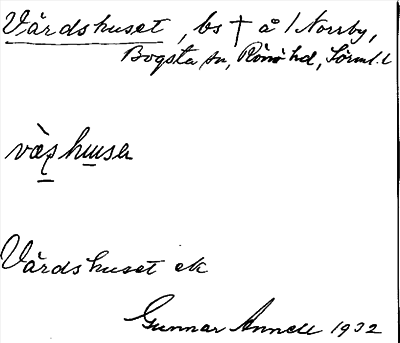 Vårdshuset, bs † å / Norrby,
Bogsta sn, Rönö hd, Sörml. l

Vårdshuset ek
Gunnar Annell 1932